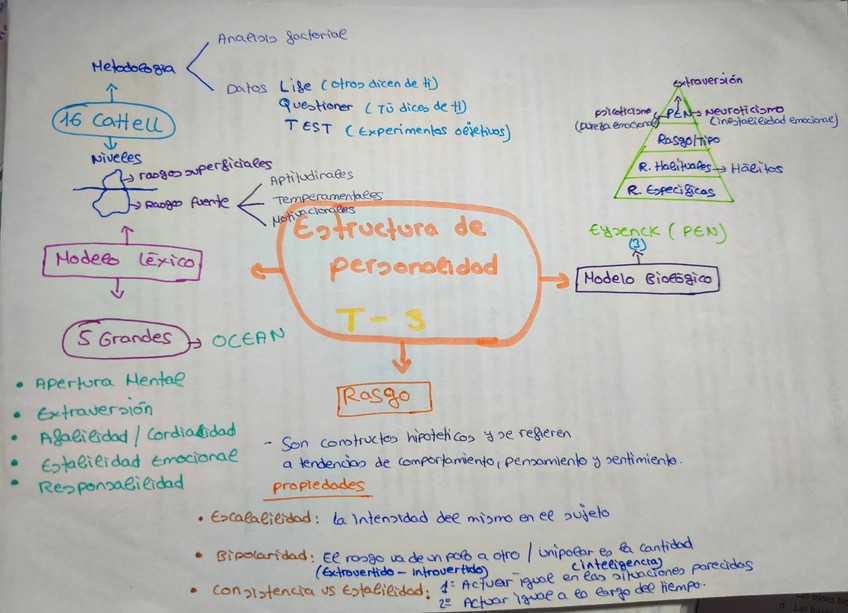 Metodología
Analisis factorial
Datos Life (otros dicen de ti)
Questioner (Tú dices de ti)
TEST (Experimentos objetivos)
16 Cattell
Niveles
rasgos superficiales
Rasgo fuente
Aptitudinales
Temperamentales
Motivacionales
Modelo Léxico
5 Grandes → OCEAN
• Apertura Mental
• Extraversión
• Afabilidad / Cordialidad
• Estabilidad Emocional
• Responsabilidad
Estructura de
personalidad
T - 3
extraversión
psicoticismo
(dureza emocional)
PEN → Neuroticismo
(inestabilidad emocional)
Rasgo/Tipo
R. Habituales → Hábitos
R. Especificas
Eysenck (PEN)
(3)
Modelo Biológico
Rasgo
- Son constructos hipoteticos y se refieren
a tendencias de comportamiento, pensamiento y sentimiento.
propiedades
• Escalabilidad: la intensidad del mismo en el sujeto
• Bipolaridad: El rasgo va de un polo a otro / unipolar es la cantidad
(Extrovertido - introvertido) (inteligencia)
• Consistencia vs Estabilidad: 1º Actuar igual en las situaciones parecidas
2º Actuar igual a lo largo del tiempo.